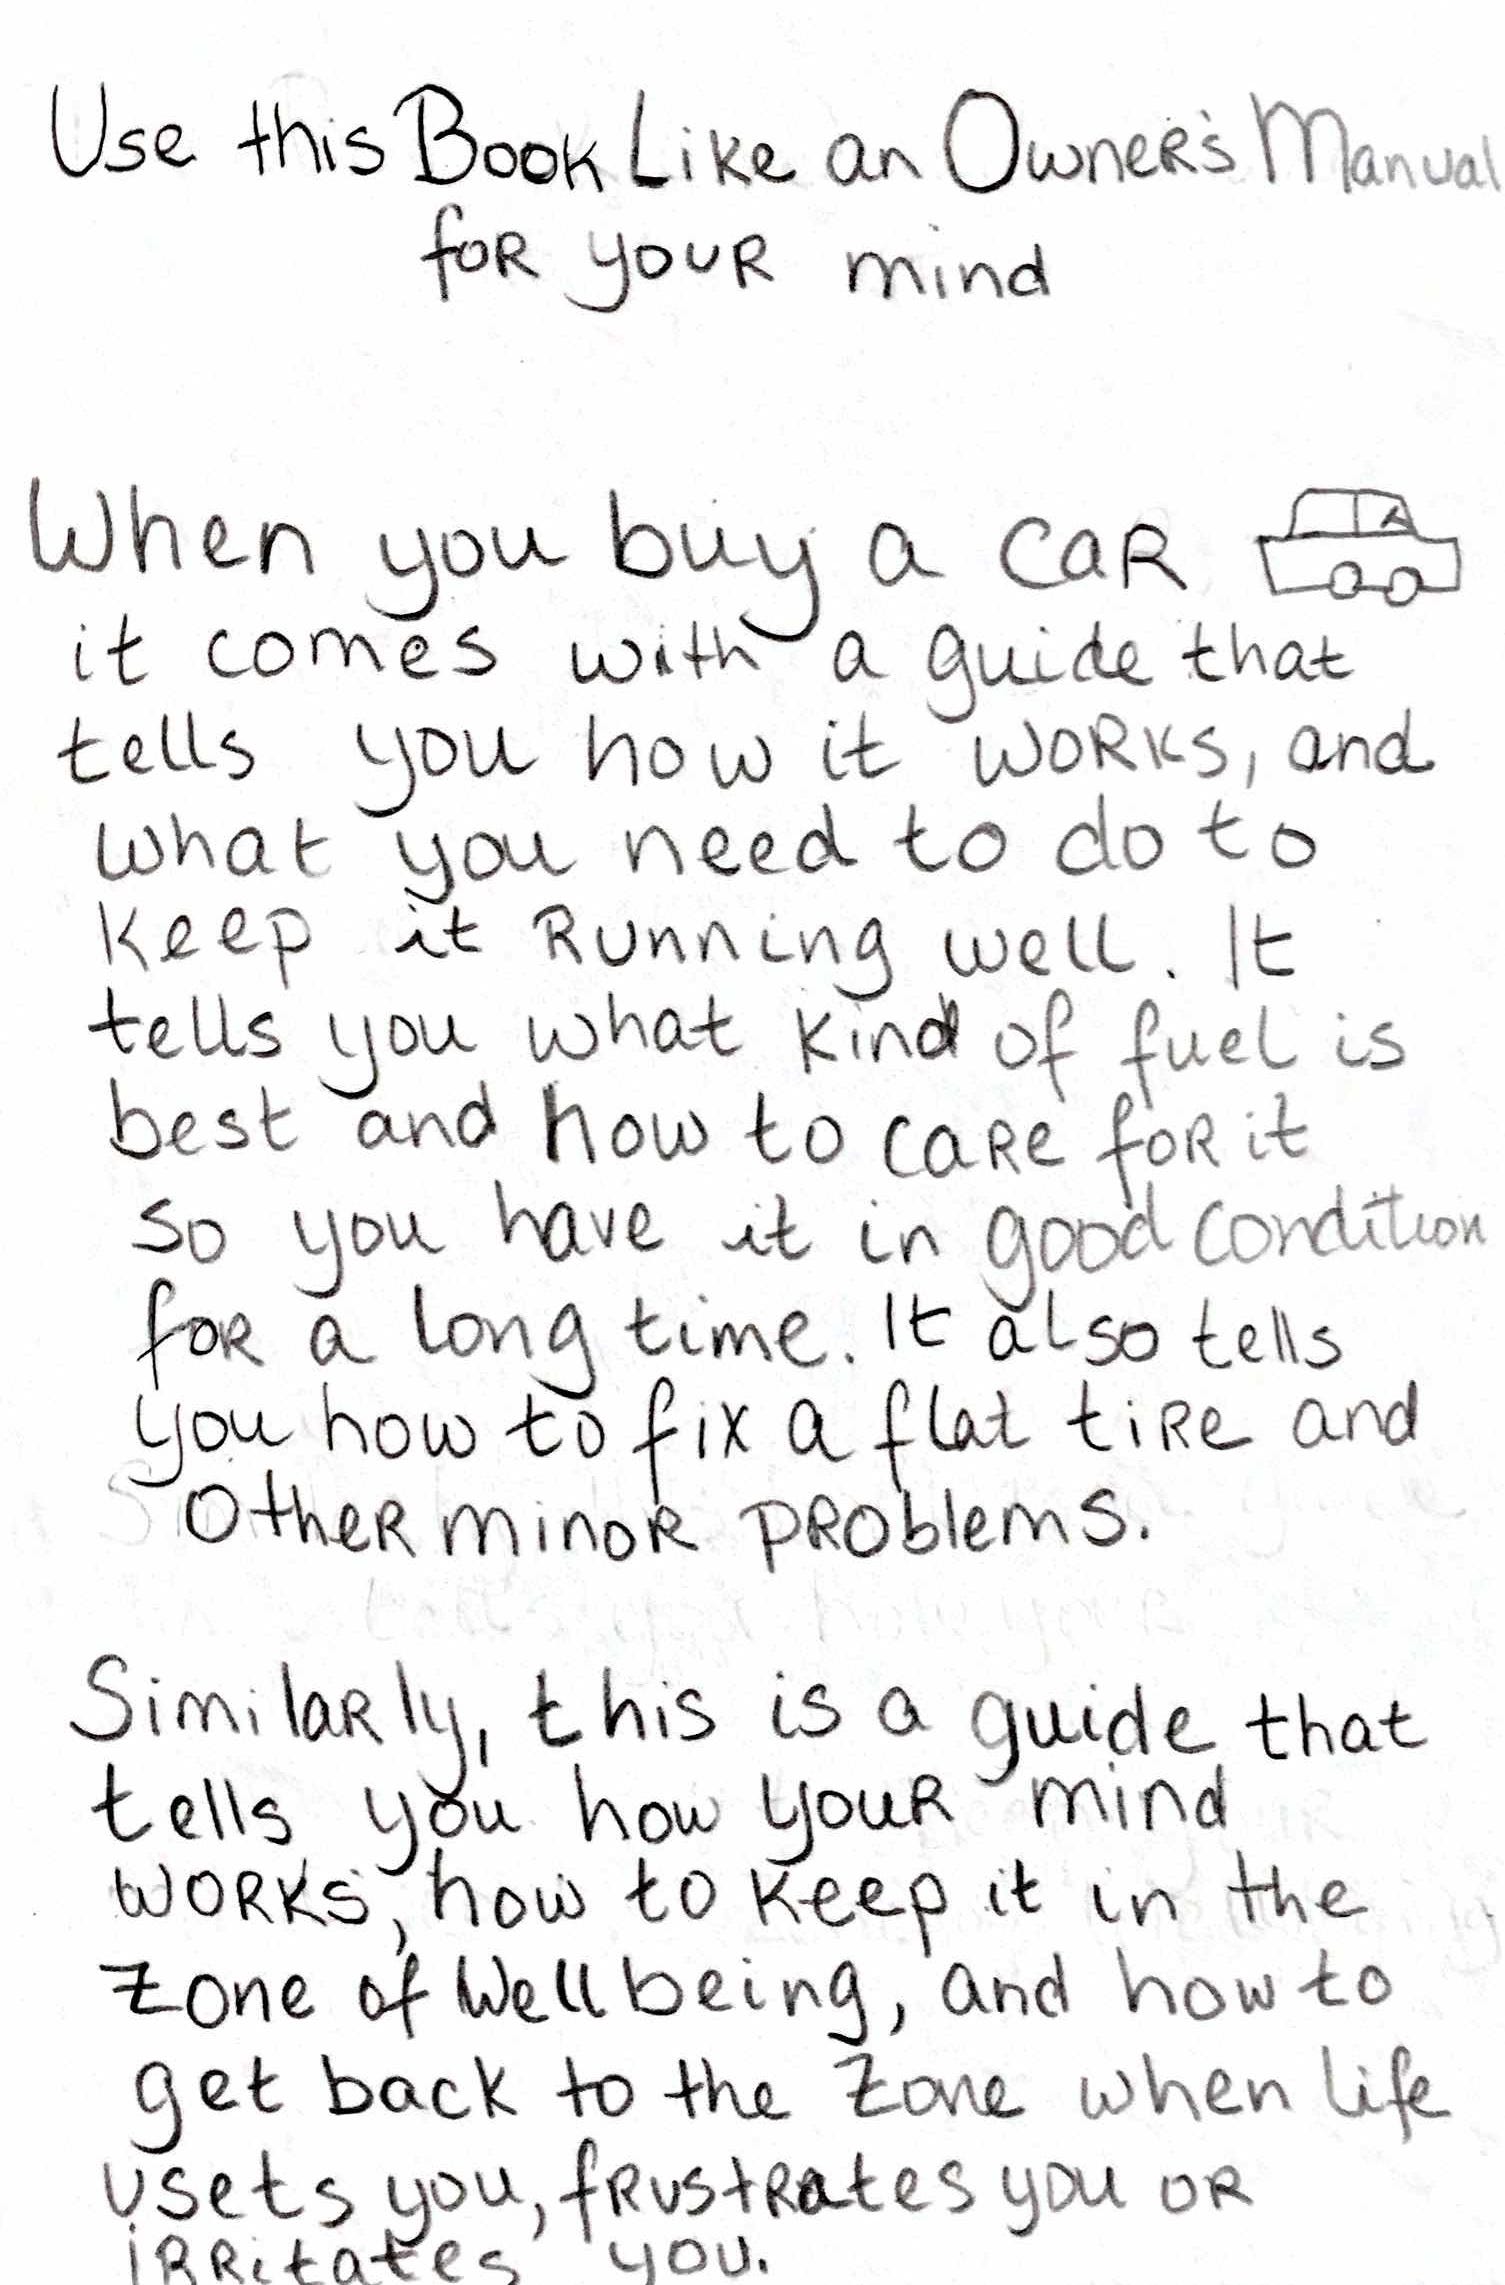 Use this Book Like an Owner's Manual
for your mind
When you buy a car
it comes with a guide that
tells you how it works, and
what you need to do to
keep it running well. It
tells you what kind of fuel is
best and how to care for it
so you have it in good condition
for a long time. It also tells
you how to fix a flat tire and
other minor problems.
Similarly, this is a guide that
tells you how your mind
works, how to keep it in the
zone of Wellbeing, and how to
get back to the zone when life
usets you, frustrates you or
irritates you.